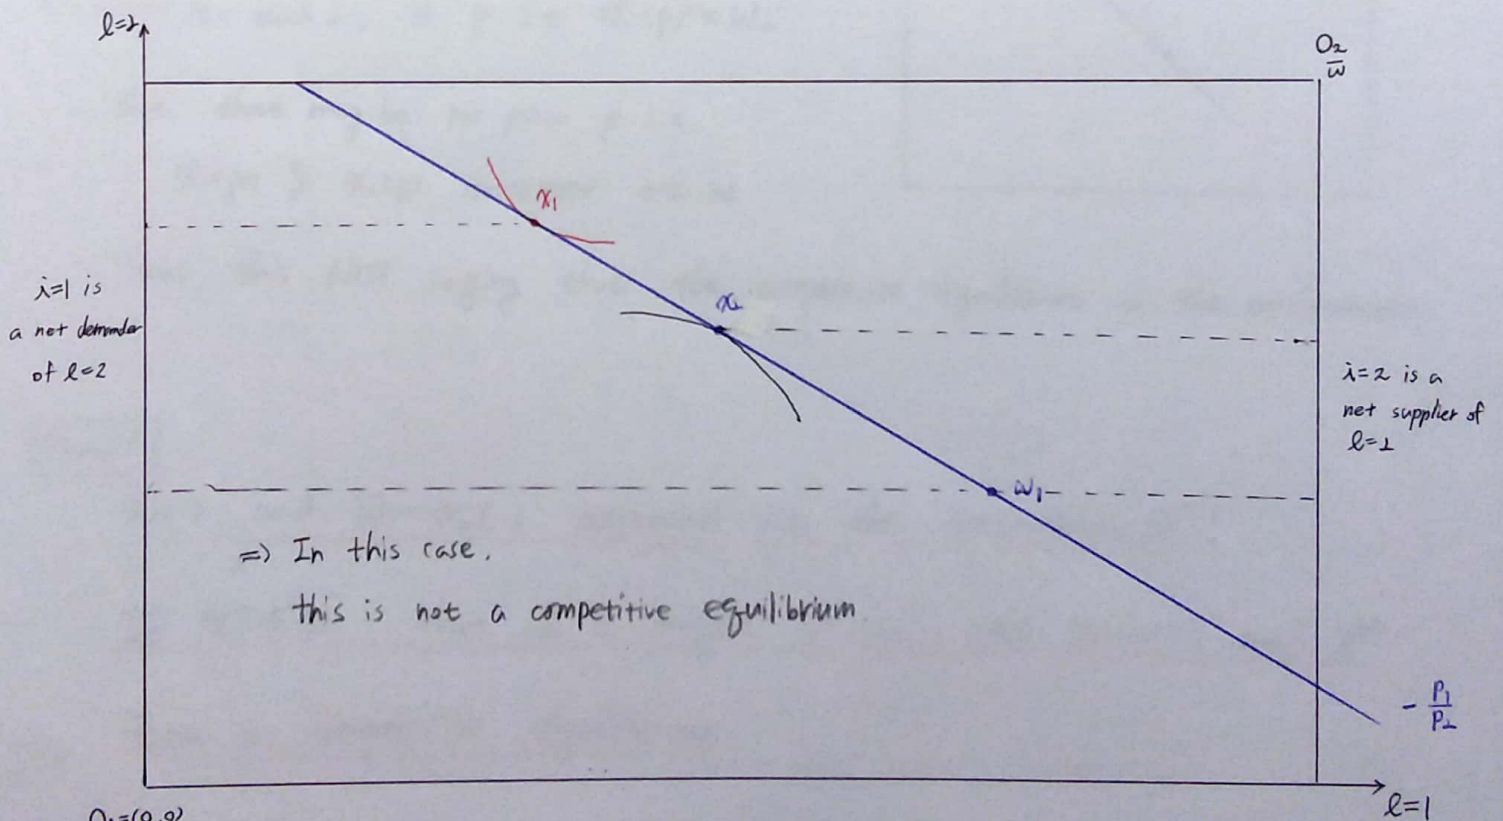 l=2
O₂
ω̅
x₁
i=1 is
a net demander
of l=2
x₂
i=2 is a
net supplier of
l=2
ω₁
=> In this case,
this is not a competitive equilibrium.
- P₁/P₂
l=1
O₁=(0,0)